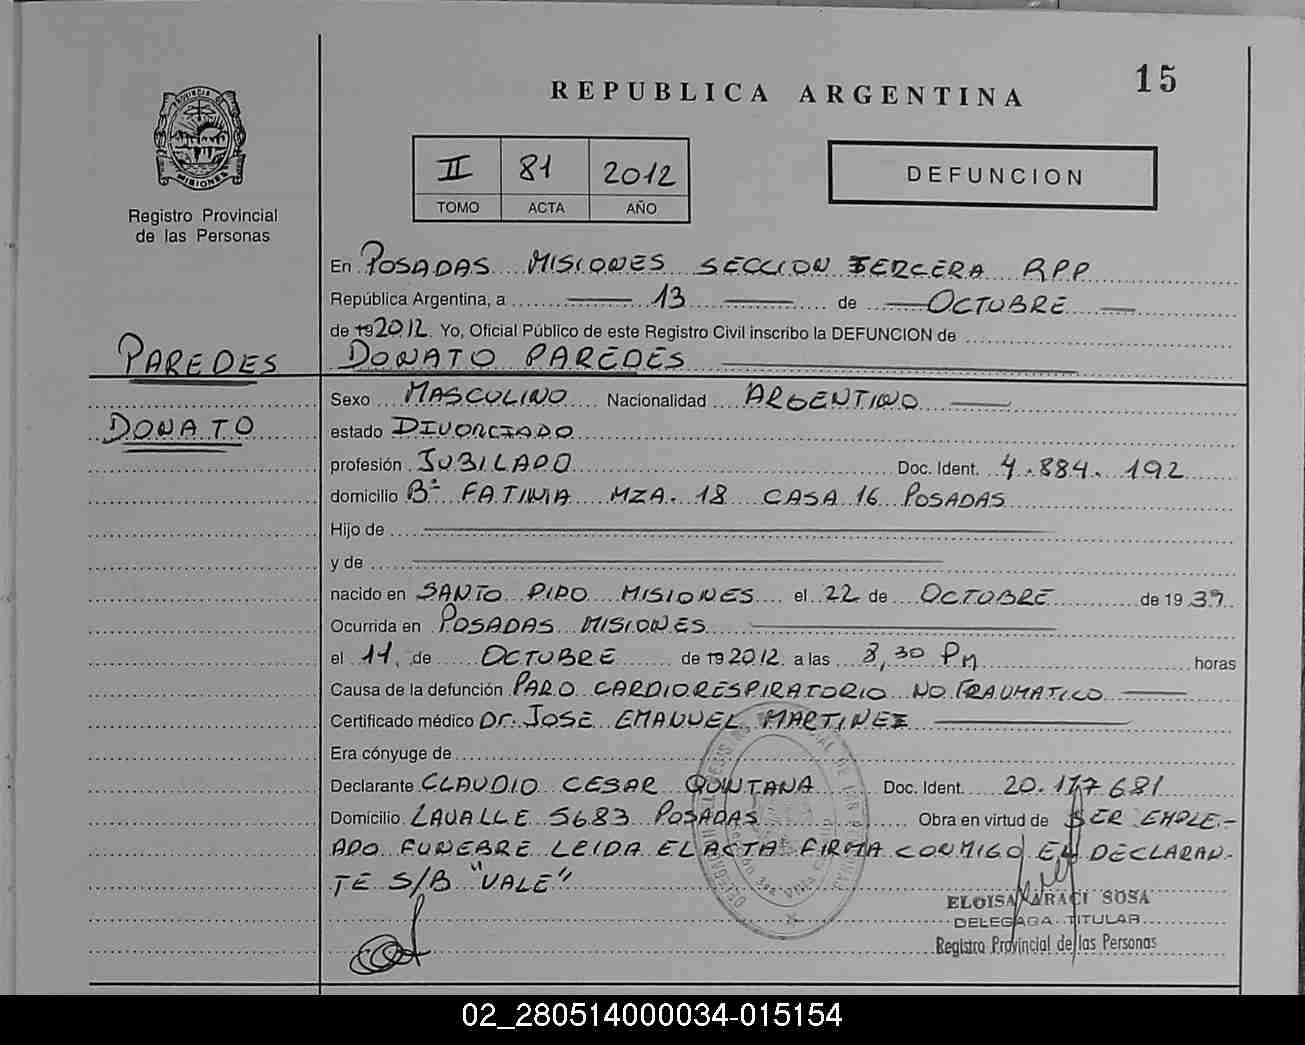 15
REPUBLICA ARGENTINA
PROVINCIA DE
MISIONES
Registro Provincial
de las Personas
II 81 2012
TOMO ACTA AÑO
DEFUNCION
En POSADAS MISIONES SECCION TERCERA RPP
República Argentina, a 13 de OCTUBRE
de 192012. Yo, Oficial Público de este Registro Civil inscribo la DEFUNCION de
DONATO PAREDES
PAREDES
DONATO
Sexo MASCULINO Nacionalidad ARGENTINO
estado DIVORCIADO
profesión JUBILADO Doc. Ident. 4.884.192
domicilio Bº FATIMA MZA. 18 CASA 16 POSADAS
Hijo de
y de
nacido en SANTO PIPO MISIONES el 22 de OCTUBRE de 1939
Ocurrida en POSADAS MISIONES
el 11 de OCTUBRE de 192012 a las 8,30 PM horas
Causa de la defunción PARO CARDIORESPIRATORIO NO TRAUMATICO
Certificado médico Dr. JOSE EMANUEL MARTINEZ
Era cónyuge de
Declarante CLAUDIO CESAR QUINTANA Doc. Ident. 20.177681
Domicilio LAVALLE 5683 POSADAS Obra en virtud de SER EMPLE-
ADO FUNEBRE LEIDA EL ACTA FIRMA CONMIGO EL DECLARAN-
TE S/B "VALE"
ELOISA ARACI SOSA
DELEGADA TITULAR
Registro Provincial de las Personas
02_280514000034-015154